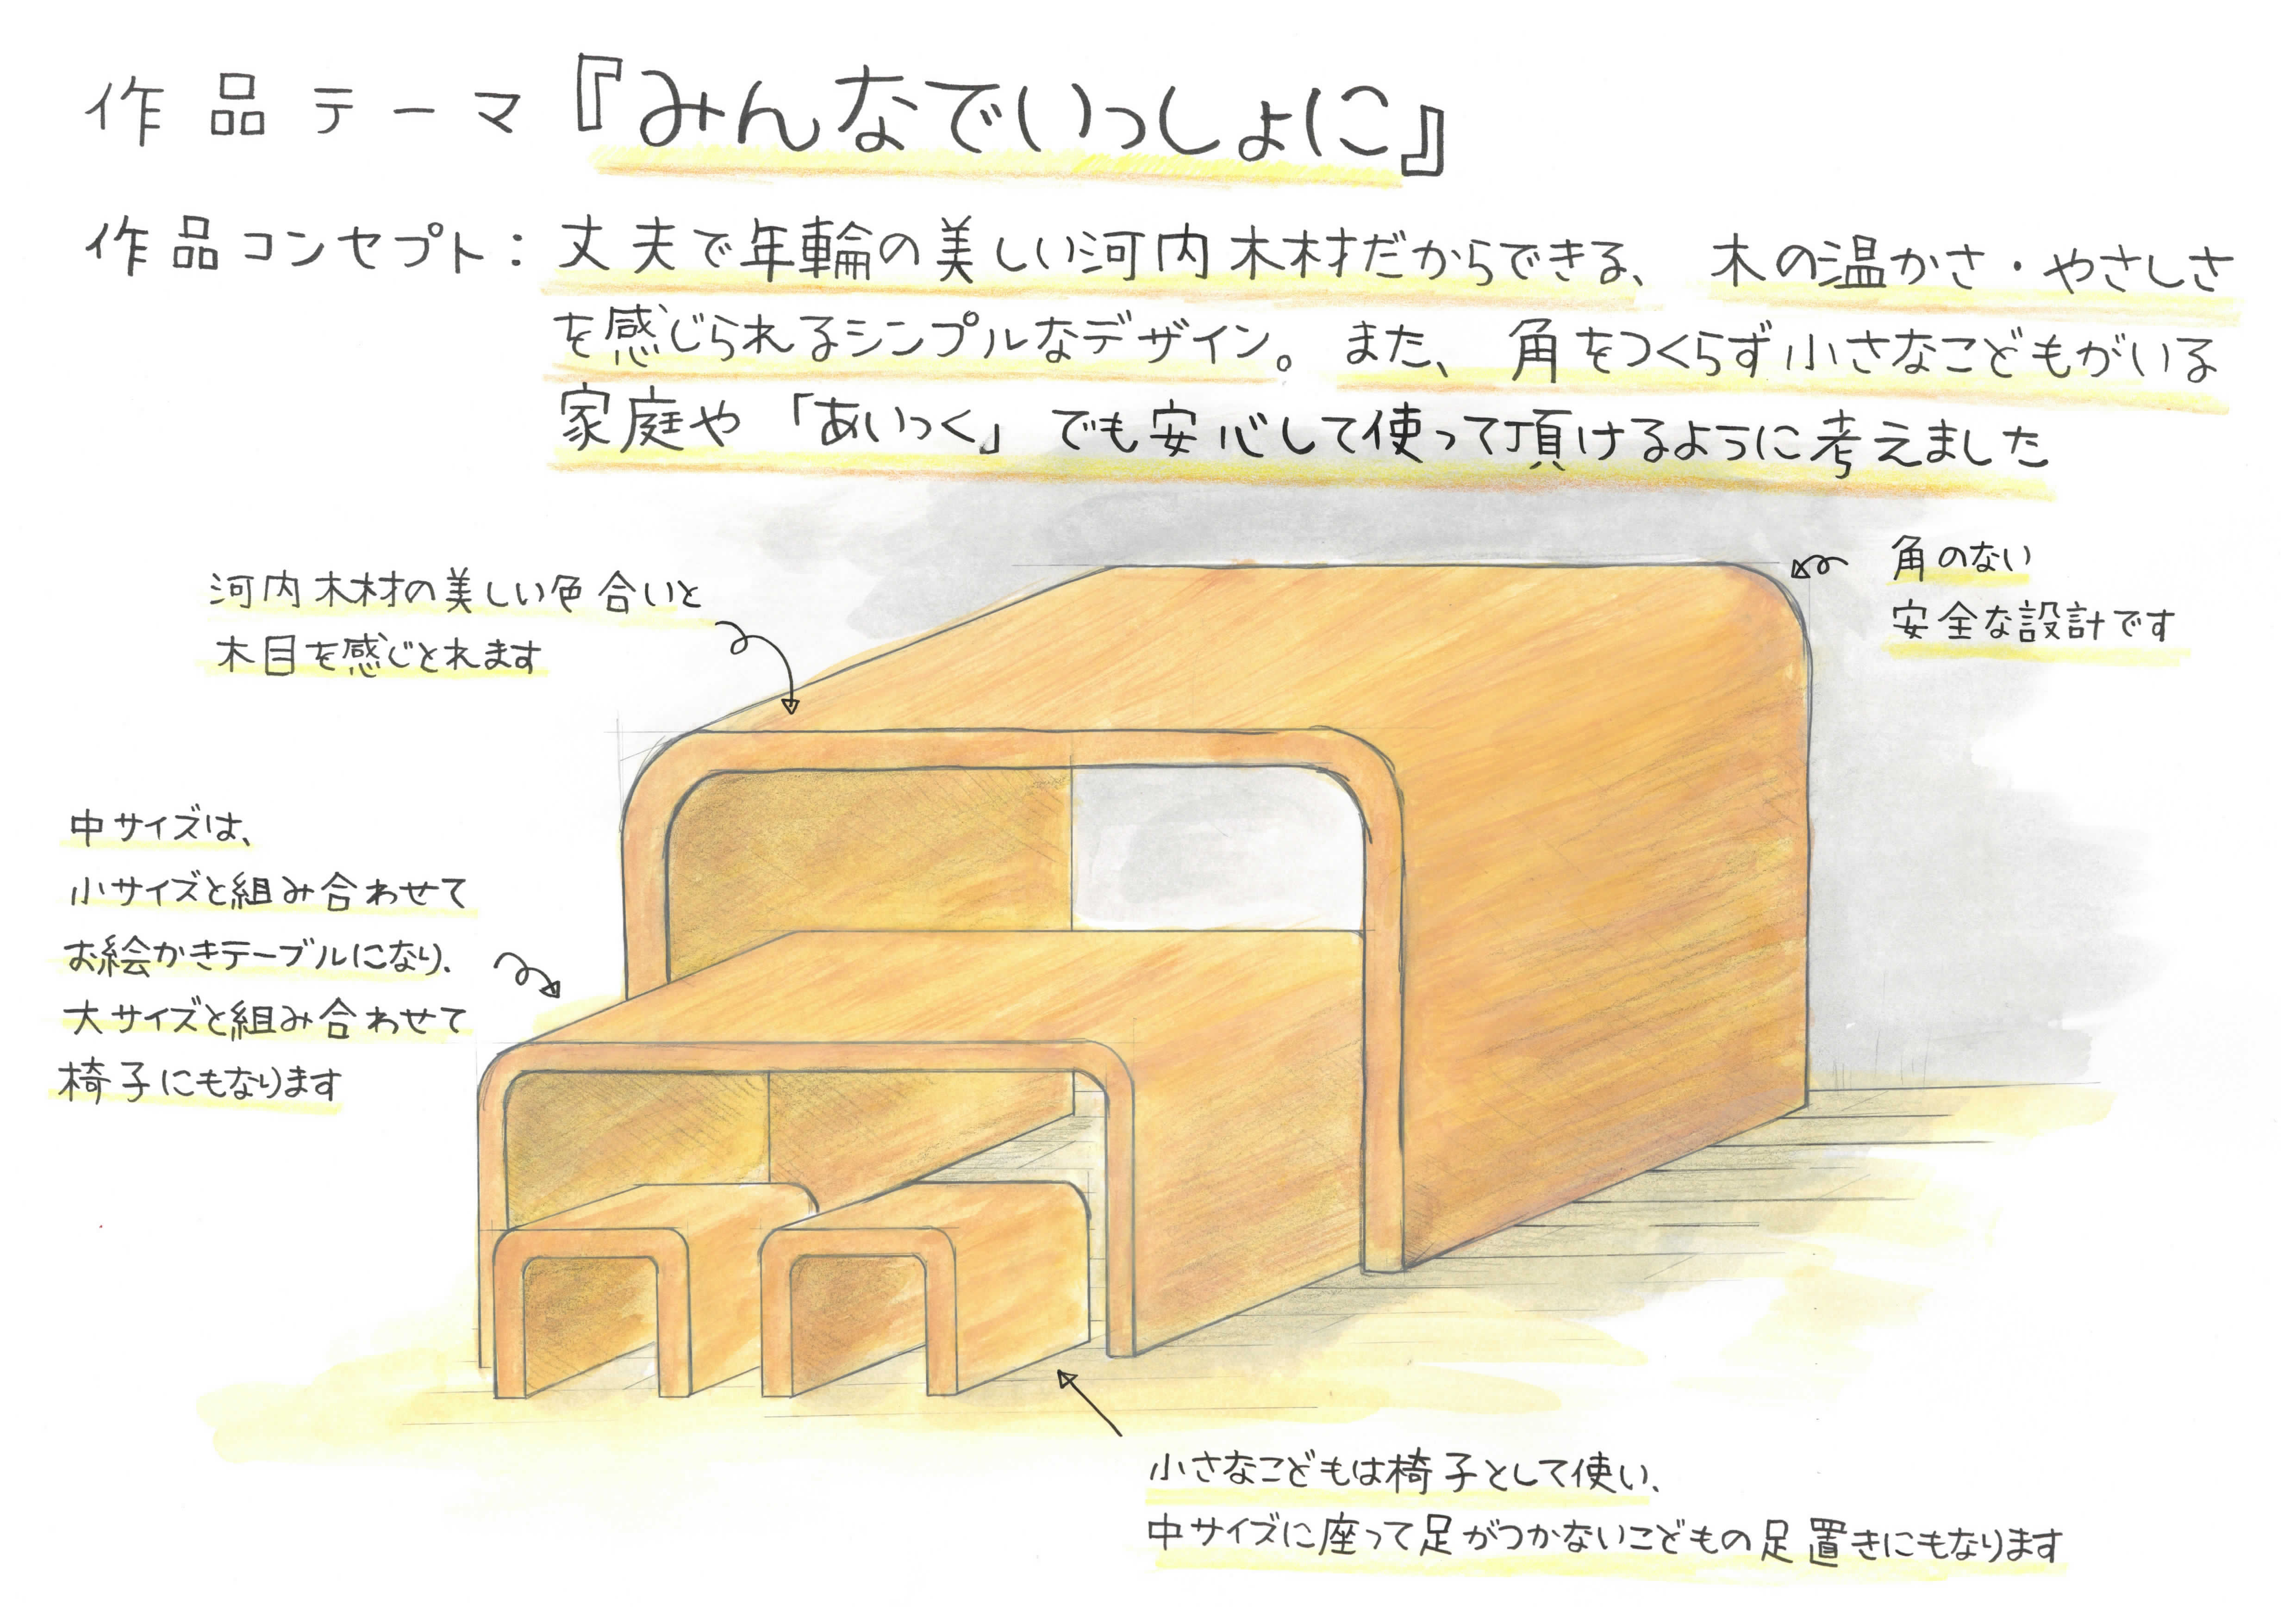 作品テーマ『みんなでいっしょに』
作品コンセプト：丈夫で年輪の美しい河内木材だからできる、木の温かさ・やさしさ
を感じられるシンプルなデザイン。また、角をつくらず小さなこどもがいる
家庭や「あいっく」でも安心して使って頂けるように考えました
角のない
安全な設計です
河内木材の美しい色合いと
木目を感じとれます
中サイズは、
小サイズと組み合わせて
お絵かきテーブルになり、
大サイズと組み合わせて
椅子にもなります
小さなこどもは椅子として使い、
中サイズに座って足がつかないこどもの足置きにもなります